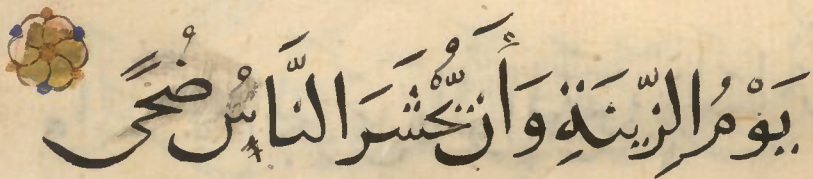 يَوْمُ الزِّينَةِ وَأَن يُحْشَرَ النَّاسُ ضُحًى